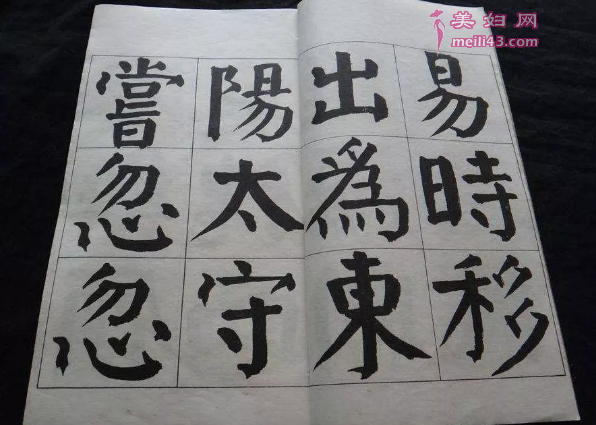 美妇网
meili43.com
易時移
出為東
陽太守
嘗忽忽